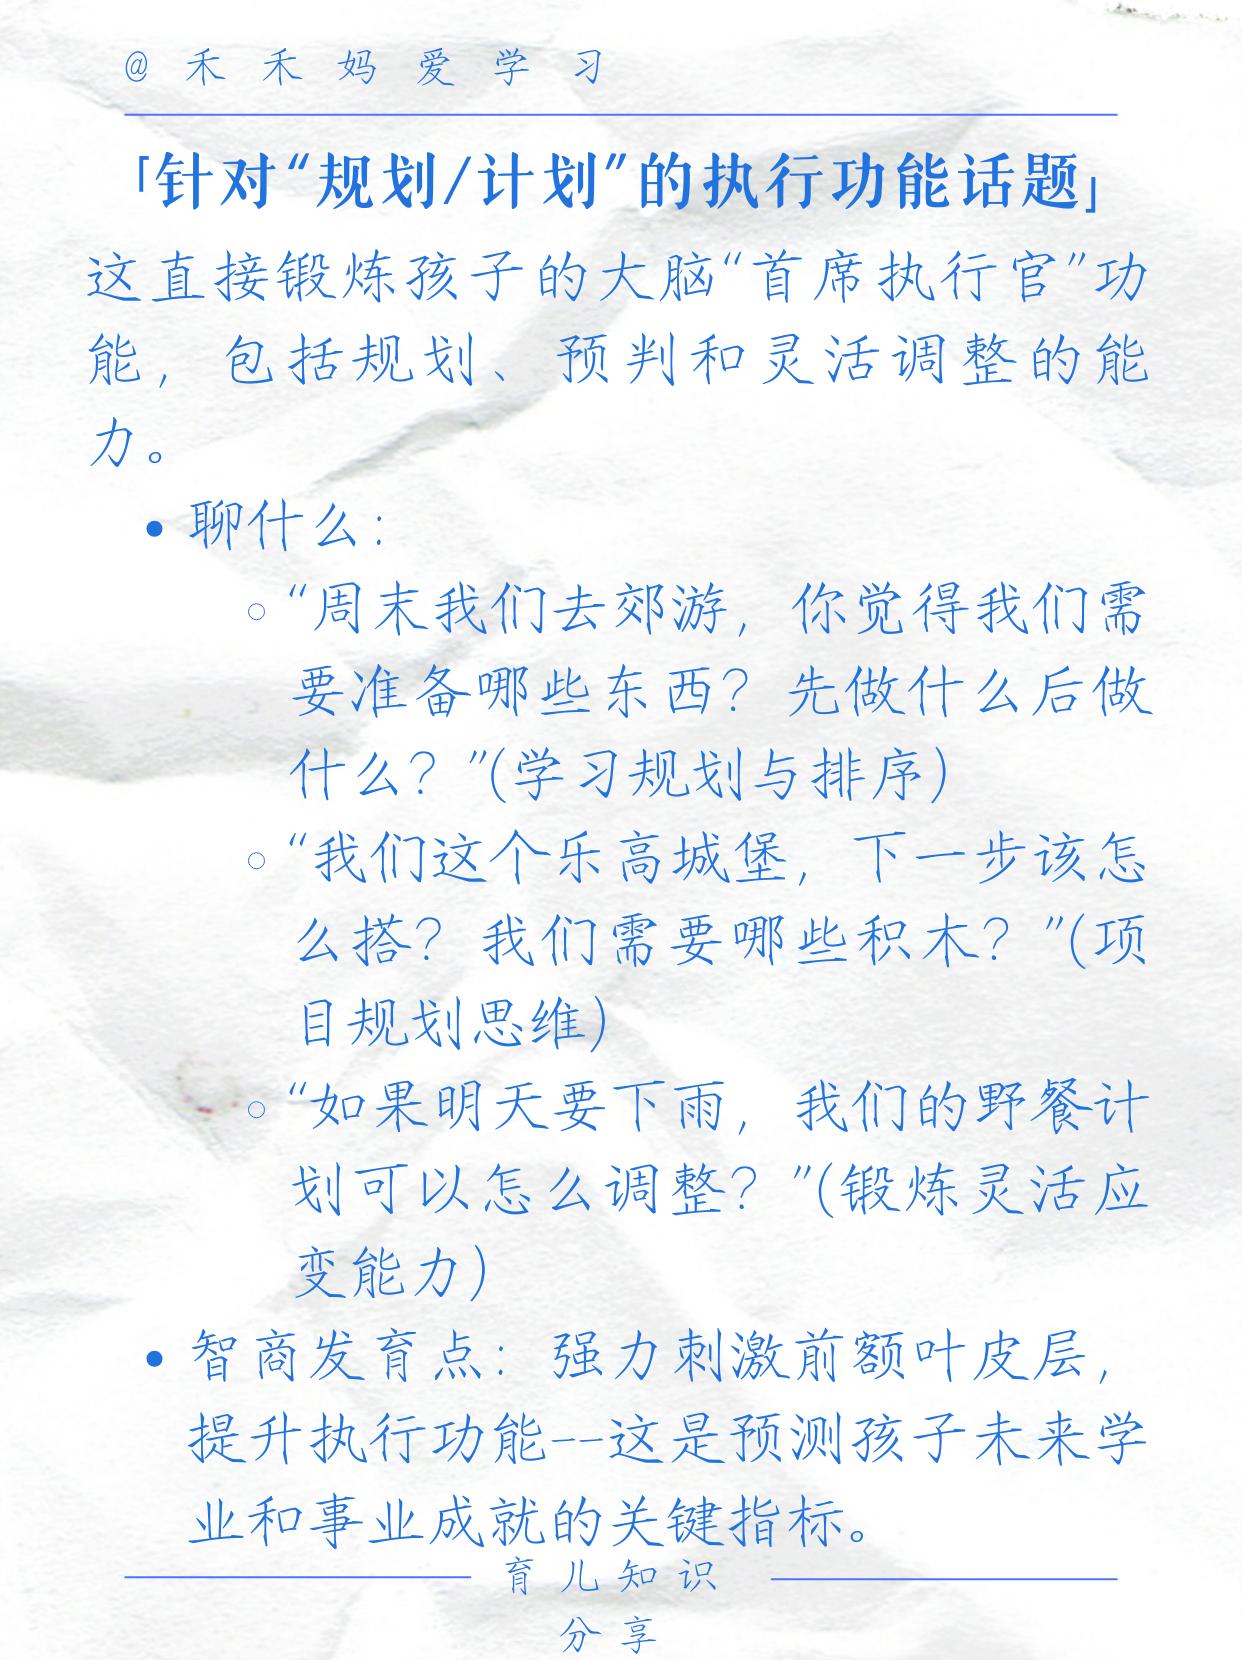 @禾禾妈爱学习
「针对“规划/计划”的执行功能话题」
这直接锻炼孩子的大脑“首席执行官”功
能，包括规划、预判和灵活调整的能
力。
• 聊什么：
○ “周末我们去郊游，你觉得我们需
要准备哪些东西？先做什么后做
什么？”(学习规划与排序)
○ “我们这个乐高城堡，下一步该怎
么搭？我们需要哪些积木？”(项
目规划思维)
○ “如果明天要下雨，我们的野餐计
划可以怎么调整？”(锻炼灵活应
变能力)
• 智商发育点：强力刺激前额叶皮层，
提升执行功能--这是预测孩子未来学
业和事业成就的关键指标。
育儿知识
分享